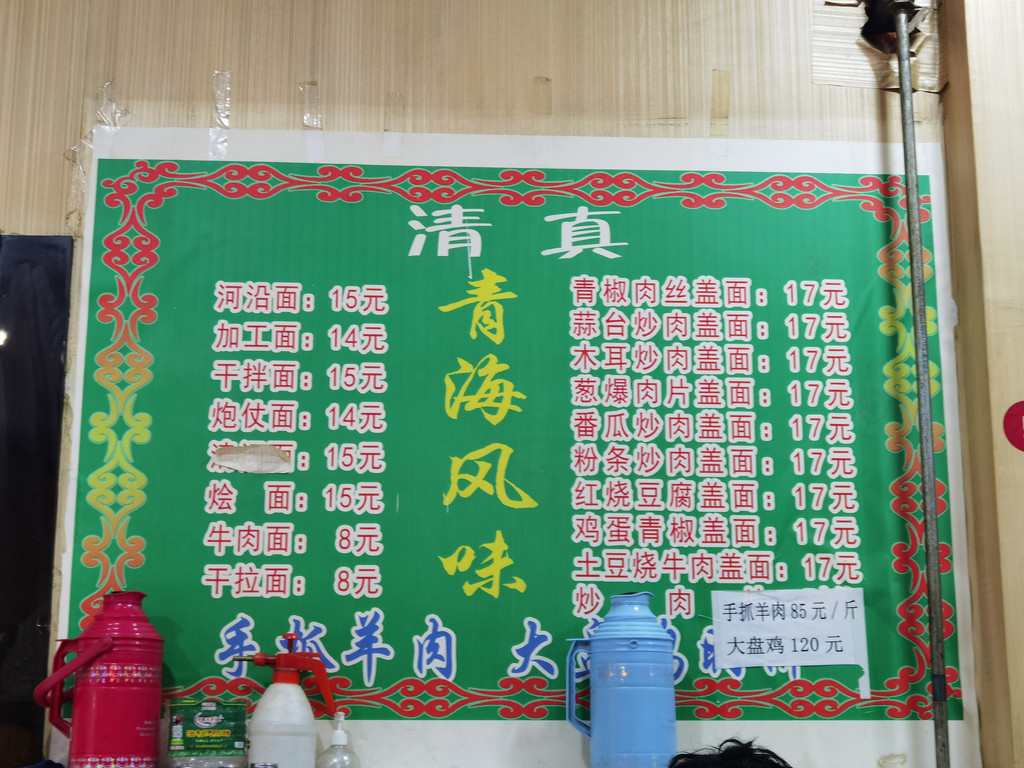 清真
青海风味
河沿面：15元
加工面：14元
干拌面：15元
炮仗面：14元
面：15元
烩 面：15元
牛肉面：8元
干拉面：8元
青椒肉丝盖面：17元
蒜台炒肉盖面：17元
木耳炒肉盖面：17元
葱爆肉片盖面：17元
番瓜炒肉盖面：17元
粉条炒肉盖面：17元
红烧豆腐盖面：17元
鸡蛋青椒盖面：17元
土豆烧牛肉盖面：17元
炒 肉
手抓羊肉 大
手抓羊肉 85 元 / 斤
大盘鸡 120 元